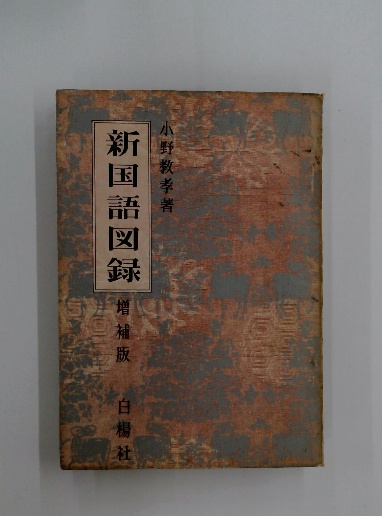 小野教孝著
新国語図録
増補版
白楊社